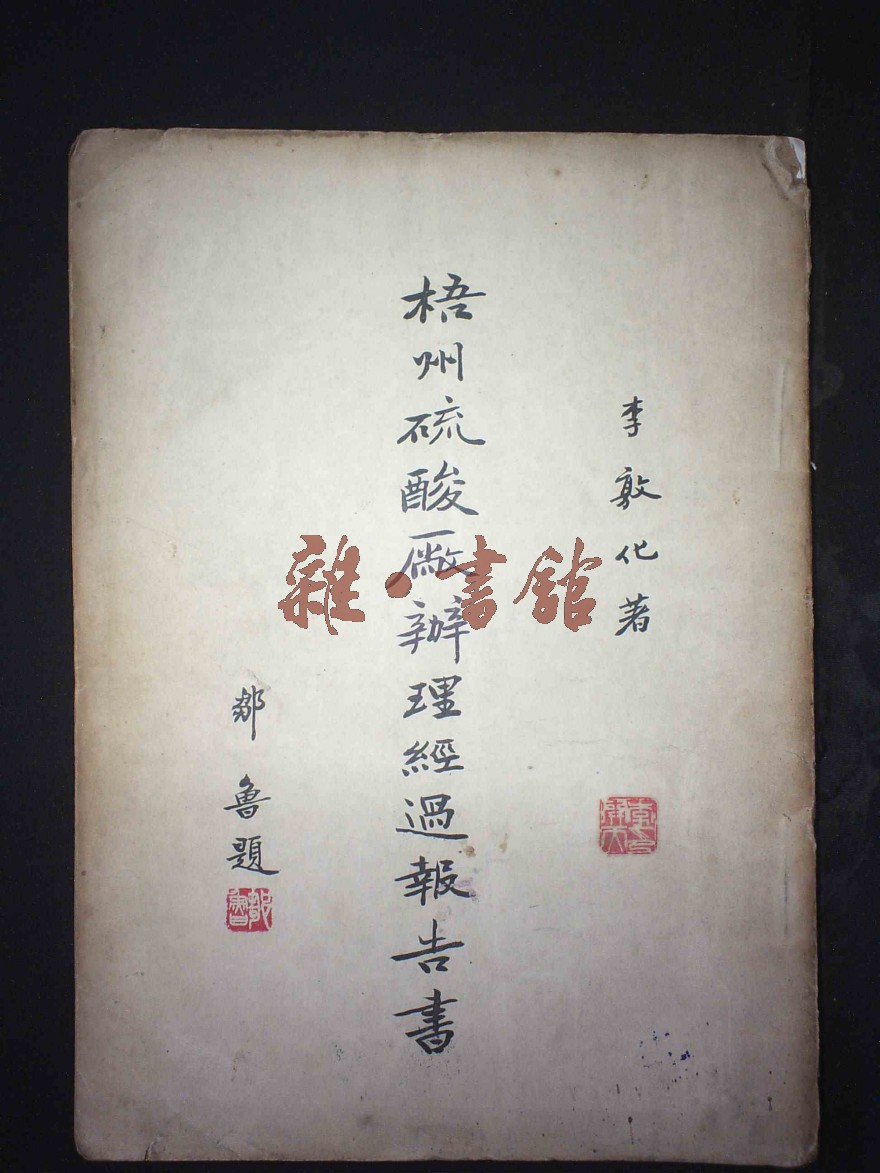 李敦化著
梧州硫酸廠辦理經過報告書
鄒魯題
鄒魯
雜·書館